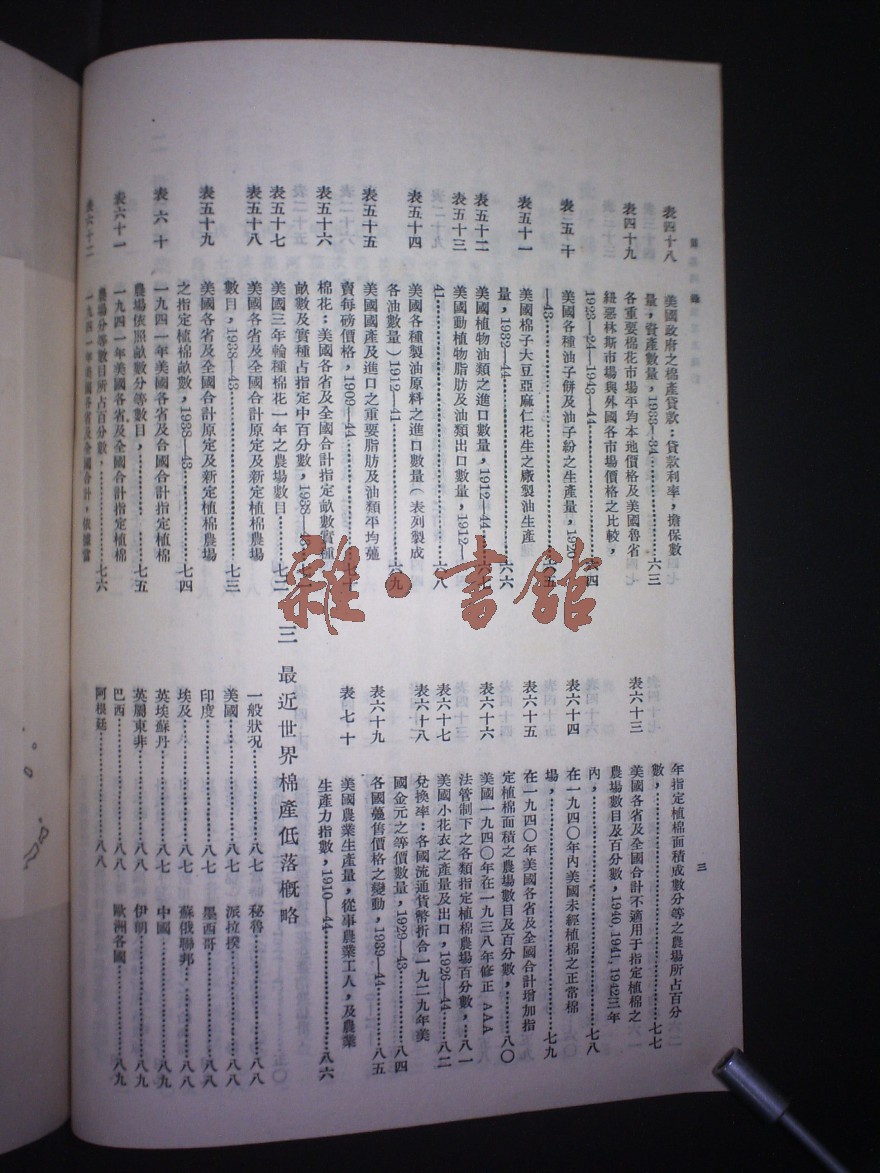 三
表四十八
美國政府之棉產貸款：貸款利率，擔保數
量，資產數量，1933—34………六三
表四十九
各重要棉花市場平均本地價格及美國魯省
紐惡林斯市場與外國各市場價格之比較，
1923—24—1943—44………六四
表五十
美國各種油子餅及油子粉之生產量，1920
—43………六五
表五十一
美國棉子大豆亞麻仁花生之廠製油生產
量，1932—44………六六
表五十二
美國植物油類之進口數量，1912—44………六七
表五十三
美國動植物脂肪及油類出口數量，1912—
41………六八
表五十四
美國各種製油原料之進口數量（表列製成
各油數量）1912—41………六九
表五十五
美國國產及進口之重要脂肪及油類平均躉
賣每磅價格，1909—44………七十
表五十六
棉花：美國各省及全國合計指定畝數實種
畝數及實種占指定中百分數，1938—43………七一
表五十七
美國三年輪種棉花一年之農場數目………七二
表五十八
美國各省及全國合計原定及新定植棉農場
數目，1938—43………七三
表五十九
美國各省及全國合計原定及新定植棉農場
之指定植棉畝數，1938—43………七四
表六十
一九四一年美國各省及合國合計指定植棉
農場依照畝數分等數目，………七五
表六十一
一九四一年美國各省及全國合計指定植棉
農場分等數目所占百分數，………七六
表六十二
一九四一年美國各省及全國合計，依據當
年指定植棉面積成數分等之農場所占百分
數，………七七
表六十三
美國各省及全國合計不適用于指定植棉之
農場數目及百分數，1940, 1941, 1942三年
內，………七八
表六十四
在一九四〇年內美國未經植棉之正常棉
場，………七九
表六十五
在一九四〇年美國各省及全國合計增加指
定植棉面積之農場數目及百分數，………八〇
表六十六
美國一九四〇年在一九三八年修正 AAA
法管制下之各類指定植棉農場百分數，………八一
表六十七
美國小花衣之產量及出口，1926—44………八二
表六十八
兌換率：各國流通貨幣折合一九二九年美
國金元之等價數量，1929—43………八四
表六十九
各國躉售價格之變動，1939—44………八五
表七十
美國農業生產量，從事農業工人，及農業
生產力指數，1910—44………八六
三 最近世界棉產低落概略
一般狀況………八七
美國………八七
印度………八八
埃及………八八
英埃蘇丹………八八
英屬東非………八八
巴西………八八
阿根廷………八八
秘魯………八八
派拉撲………八八
墨西哥………八八
蘇俄聯邦………八八
中國………八九
伊朗………八九
歐洲各國………八九
雜·書館